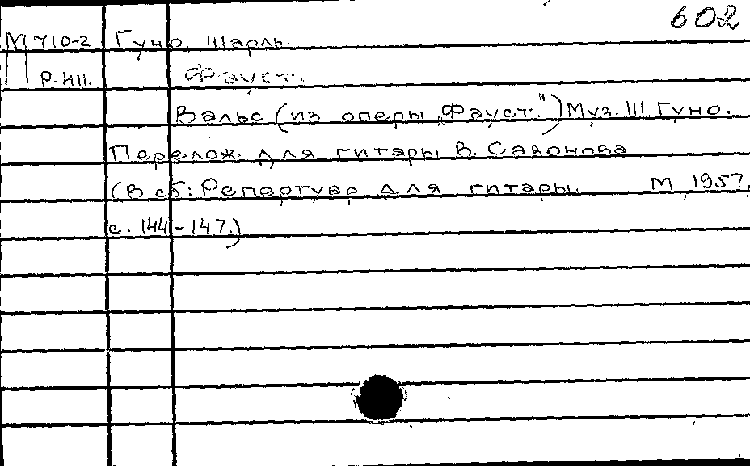 602
М 710-2 Гуно, Шарль.
Р. НП. Фауст.
Вальс (из оперы „Фауст.") Муз. Ш. Гуно.
Перелож. для гитары В. Сазонова
(В сб: Репертуар для гитары. М 1957.
с. 144-147.)